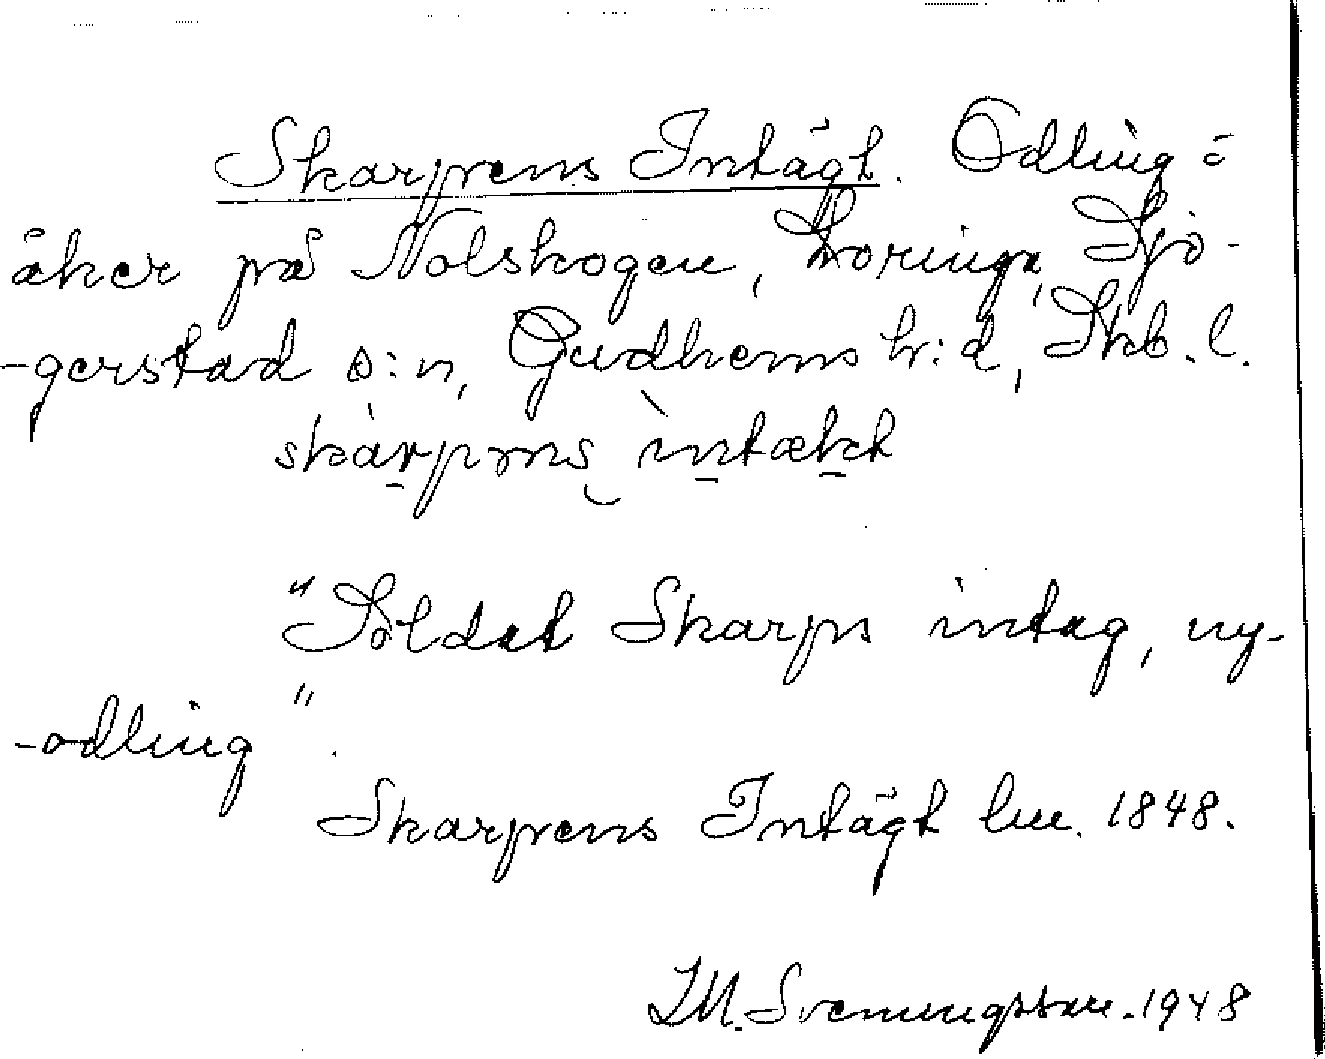 Skarpens Intägt. Odling =
åker på Nolskogen, Loringa, Sjö-
-gerstad s:n, Gudhems h:d, Skb. l.
skàrpəns ìntækt
"Soldat Skarps intag, ny-
-odling".
Skarpens Intägt lm. 1848.
I.M. Svenungsson. 1948